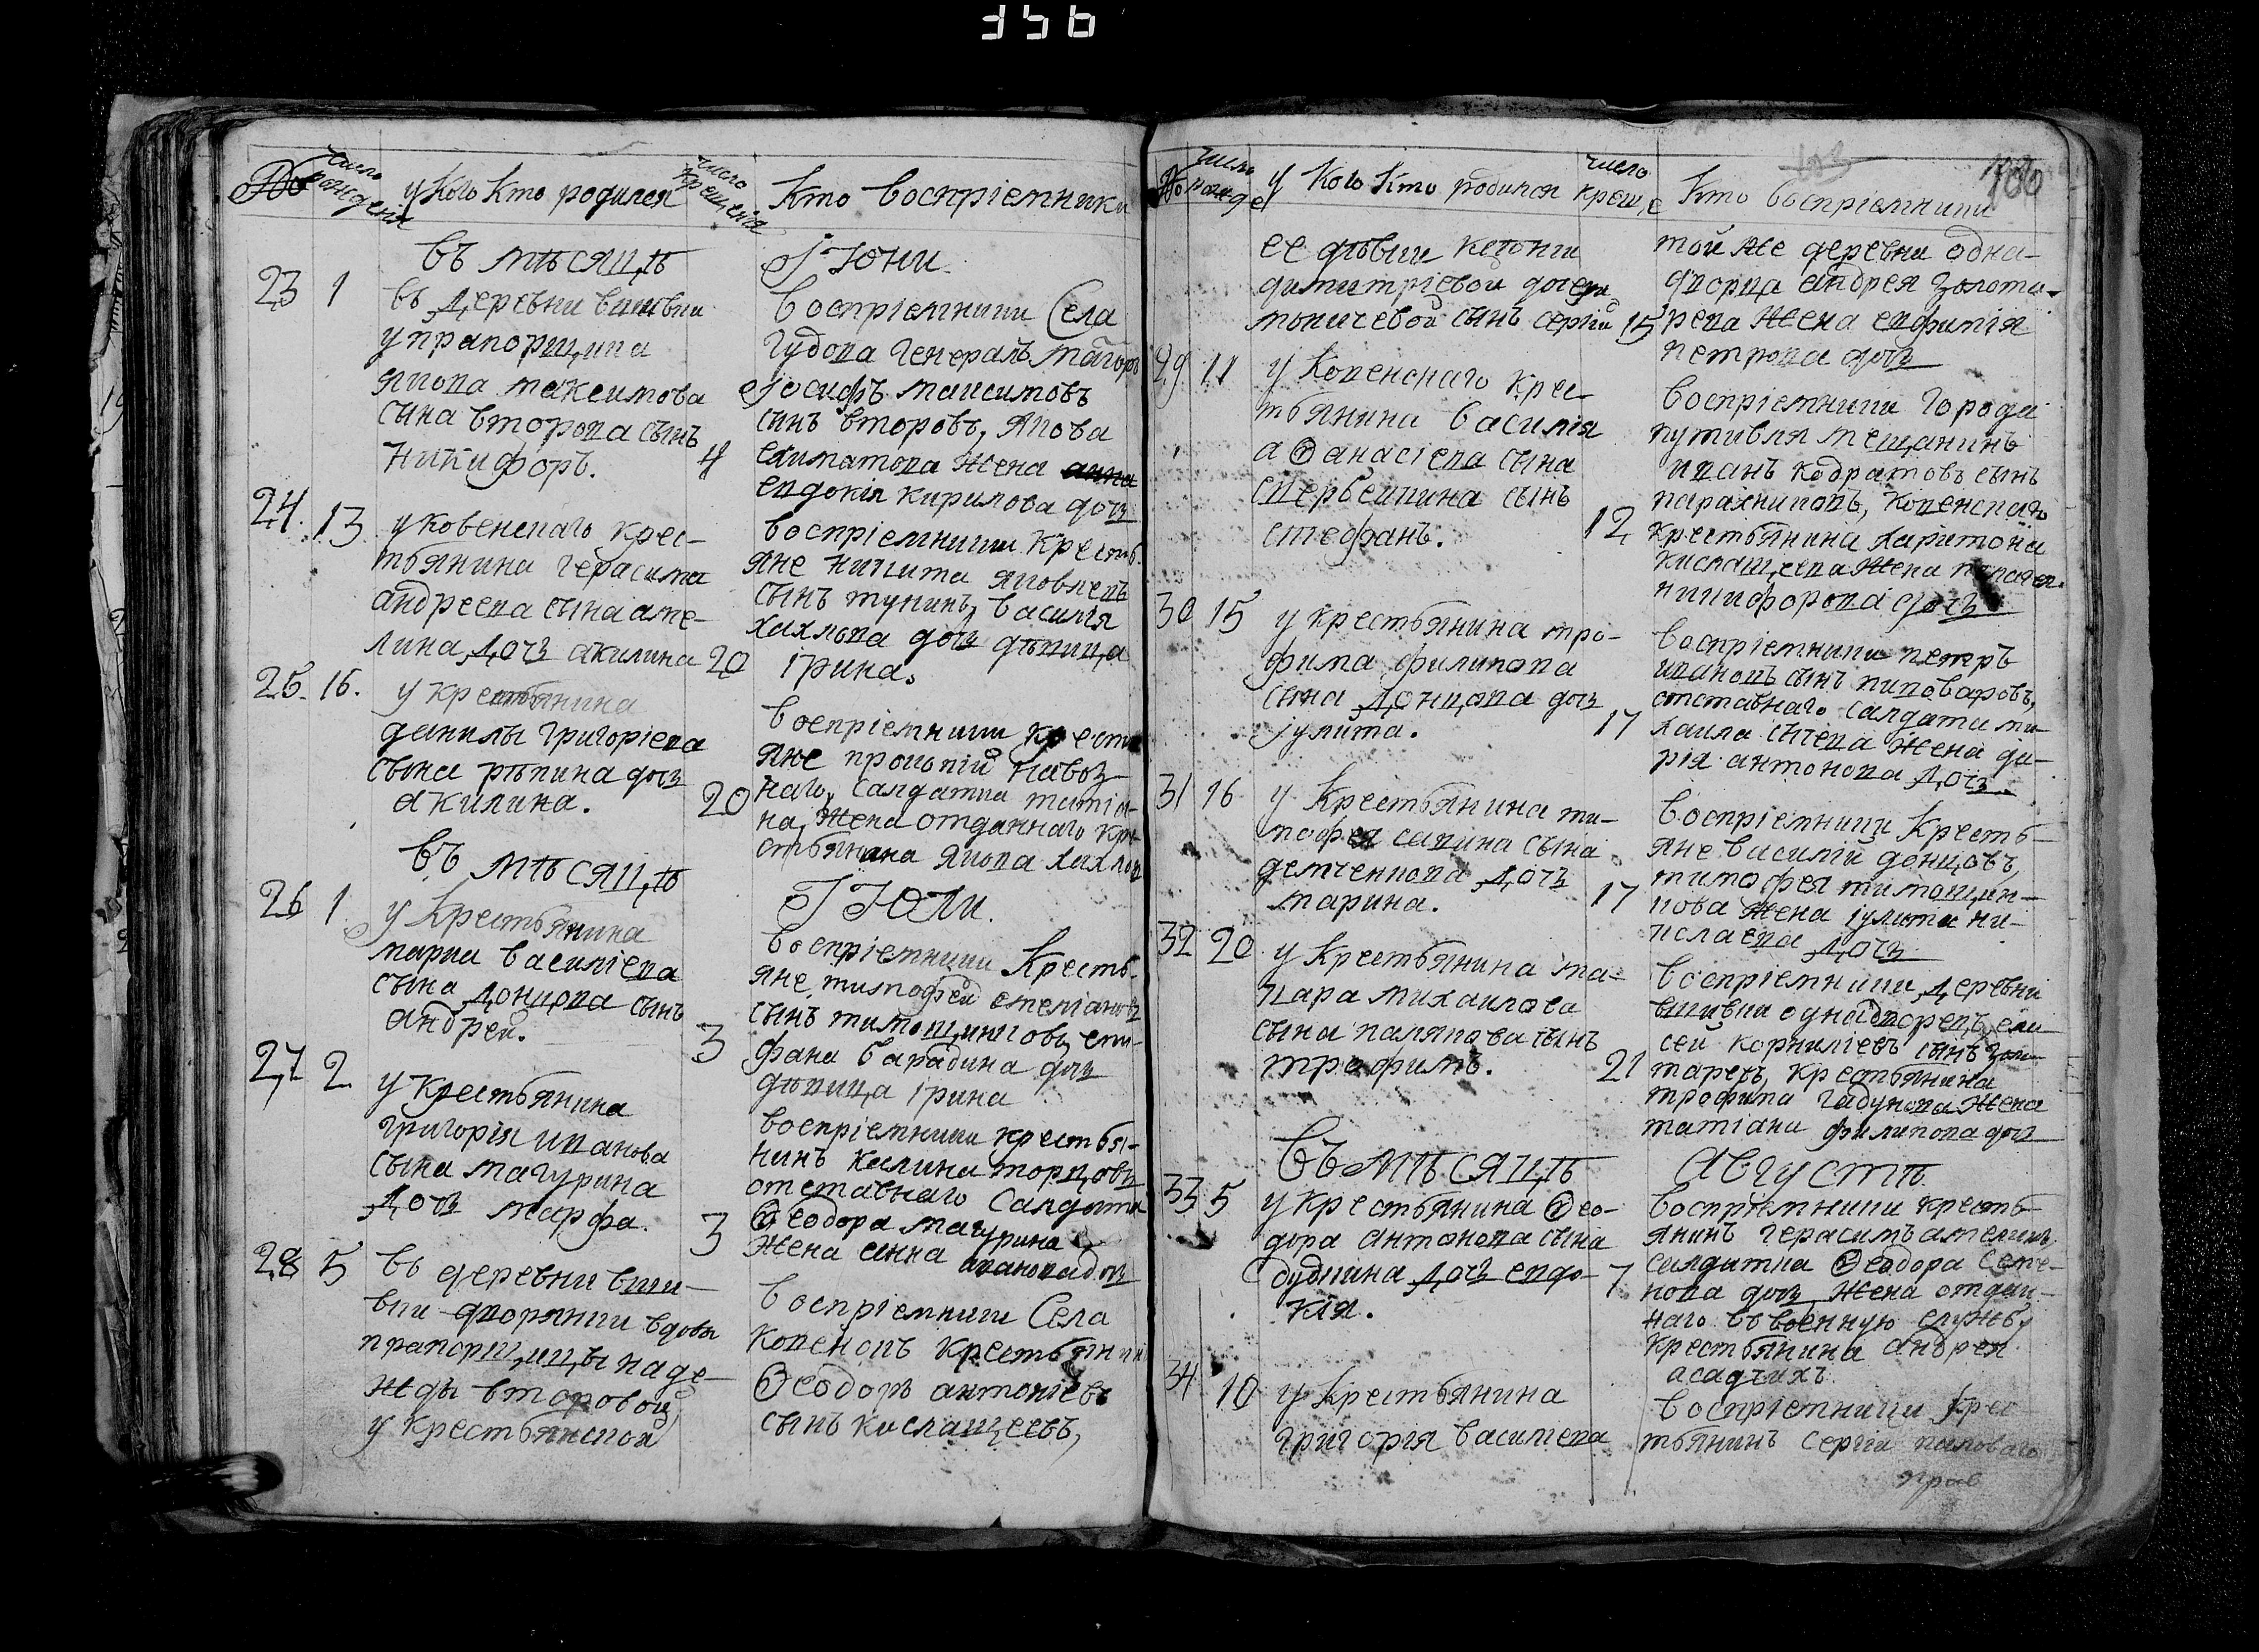 №
число рождения
у кого кто родился
число крещения
Кто воспріемники
въ мѣсяцѣ
Іюни
23 1
въ деревни вшивки
у прапорщика
якова максимова
сына второва сынъ
никифоръ.
4
воспріемники Села
гудова генералъ маіоръ
іосифъ максимовъ
сынъ второвъ, якова
екиматова жена
евдокія кирилова дочь
24. 13
у ковенскаго крес-
тьянина герасима
андреева сына аме-
лина дочь акилина 20
воспріемники кресть-
яне никита яковлевъ
сынъ тунинъ, василія
хахлова дочь дѣвица
ірина.
25. 16.
у крестьянина
данилы григоріева
сына рѣпина дочь
акилина.
20
воспріемники кресть
яне прокопій навоз-
наго, салдатка татіа-
на, жена отданнаго кре-
стьянина якова хахлова
въ мѣсяцѣ
Іюли.
26 1
у крестьянина
марка василіева
сына донцова сынъ
андрей.
3
воспріемники Кресть-
яне тимофей стеѳановъ
сынъ тимощинковъ, епи-
фана барабина дочь
дѣвица ірина
27 2
у крестьянина
григорія иванова
сына магурина
дочь марфа.
3
воспріемники крестья-
нинъ калина торцовъ
отставнаго салдата
Ѳеодора магурина
жена анна иванова дочь
28 5
въ деревни вши-
вки дворянки вдовы
прапорщицы наде-
жды второвой,
у крестьянской
воспріемники Села
ковенокъ крестьянинъ
Ѳеодоръ антоніевъ
сынъ кислащеевъ,
356
№
число рожде
у кого кто родился
число креще
Кто воспріемники
180
ее дѣвки ксоніи
димитріевой дочери
сынъ сергій 15
той же деревни одна-
дворца андрея золота-
рева жена евфимія
петрова дочь
29 11
у ковенскаго крес-
тьянина василія
аѳанасіева сына
щербешина сынъ
стефанъ.
12
воспріемники города
путивля мещанинъ
иванъ кодратовъ сынъ
парахниковъ, ковенскаго
крестьянина харитона
кислащеева жена
никифорова дочь
30 15
у крестьянина тро-
фима филипова
сына донцова дочь
іулита.
17
воспріемники петръ
ивановъ сынъ пивоваровъ,
отставнаго салдата ми-
хаила жена да-
рія антонова дочь
31 16
у крестьянина ти-
мофея савина сына
демченкова дочь
марина.
17
воспріемники кресть-
яне василій донцовъ,
тимофея тимощин-
кова жена іулита ки-
дочь
32 20
у крестьянина ма-
кара михаилова
сына палякова сынъ
трофимъ.
21
воспріемники деревни
вшивки однадворецъ, ели
сей корниліевъ сынъ золо-
таревъ, крестьянина
трофима гадунова жена
татіана филипова дочь
въ мѣсяцѣ
августѣ.
33 5
у крестьянина Ѳео-
дора антонова сына
дудкина дочь евдо-
кія.
7
воспріемники кресть-
янинъ герасимъ амелинъ,
салдатка Ѳеодора семе-
нова дочь жена отдан-
наго въ военную службу
крестьянина андрея
асадчихъ.
34 10
у крестьянина
григорія василіева
воспріемники крес
тьянинъ сергій